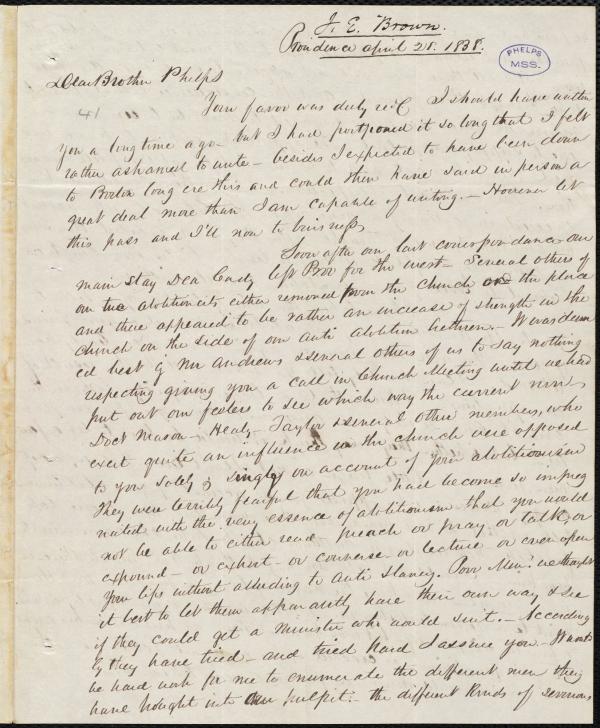 J. E. Brown.
Providence april 28. 1838.
PHELPS
MSS.
Dear Brother Phelps
41
Your favor was duly rec'd I should have written
you a long time ago - but I had postponed it so long that I felt
rather ashamed to write - besides I expected to have been down
to Boston long ere this and could then have said in person a
great deal more than I am capable of writing. - However let
this pass and I'll now to business
Soon after our last correspondance our
main stay Dea Cady left Prov for the west - Several others of
our true abolitionists either removed from the church or the place
and there appeared to be rather an increase of strength in the
church on the side of our anti abolition brethren. - It was deem
ed best by Mr Andrews & several others of us to say nothing
respecting giving you a call in Church Meeting until we had
put out our feelers to see which way the current runs
Doct Mason - Healy - Taylor & several other members, who
exert quite an influence in the church were opposed
to you solely & singly on account of your abolitionism
They were terribly fearful that you had become so impreg
nated with the very essence of abolitionism that you would
not be able to either read - preach or pray or talk, or
expound - or exhort - or converse or lecture or even open
your lips without alluding to anti slavery. Poor Men! we thought
it best to let them apparantly have their own way & see
if they could get a minister who would suit. - According
ly they have tried - and tried hard I assure you - It would
be hard work for me to enumerate the different men they
have brought into our pulpit: the different kinds of sermons